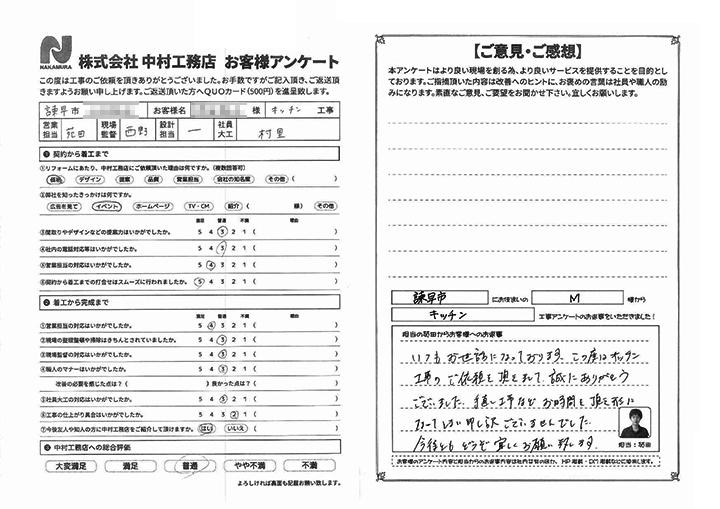 NAKAMURA
株式会社 中村工務店 お客様アンケート
この度は工事のご依頼を頂きありがとうございました。お手数ですがご記入頂き、ご返送頂
きますようお願い申し上げます。ご返送頂いた方へQUOカード(500円)を進呈致します。
諫早市 お客様名 様 キッチン 工事
営業担当 苑田 現場監督 西野 設計担当 ー 社員大工 村里
❶ 契約から着工まで
①リフォームにあたり、中村工務店にご依頼頂いた理由は何ですか。(複数回答可)
価格 デザイン 提案 品質 営業担当 会社の知名度 その他 ( )
②弊社を知ったきっかけは何ですか。
広告を見て イベント ホームページ TV・CM 紹介 ( 様) その他
満足 普通 不満 理由
③間取りやデザインなどの提案力はいかがでしたか。 5 4 3 2 1 ( )
④社内の電話対応等はいかがでしたか。 5 4 3 2 1 ( )
⑤営業担当の対応はいかがでしたか。 5 4 3 2 1 ( )
⑥契約から着工までの打合せはスムーズに行われました。 5 4 3 2 1 ( )
❷ 着工から完成まで
満足 普通 不満 理由
①営業担当の対応はいかがでしたか。 5 4 3 2 1 ( )
②現場の整理整頓や掃除はきちんとされていましたか。 5 4 3 2 1 ( )
③現場監督の対応はいかがでしたか。 5 4 3 2 1 ( )
④職人のマナーはいかがでしたか。 5 4 3 2 1 ( )
改善の必要を感じた点は?( )良かった点は?( )
⑤社員大工の対応はいかがでしたか。 5 4 3 2 1 ( )
⑥工事の仕上がり具合はいかがでしたか。 5 4 3 2 1 ( )
⑦今後友人や知人の方に中村工務店をご紹介して頂けますか。 はい いいえ ( )
❸ 中村工務店への総合評価
大変満足 満足 普通 やや不満 不満
よろしければ裏面も記載お願い致します。
【ご意見・ご感想】
本アンケートはより良い現場を創る為、より良いサービスを提供することを目的とし
ております。ご指摘頂いた内容は改善へのヒントに、お褒めの言葉は社員や職人の励
みになります。素直なご意見、ご要望をお聞かせ下さい。宜しくお願いします。
諫早市 にお住まいの M 様から
キッチン 工事アンケートのお返事をいただきました!
担当の苑田からお客様へのお返事
いつもお世話になっております。この度はキッチン
工事のご依頼を頂きまして、誠にありがとう
ございました。手直し工事などお時間を頂く形に
なってしまい申し訳ございませんでした。
今後ともどうぞ宜しくお願い致します。
担当:苑田